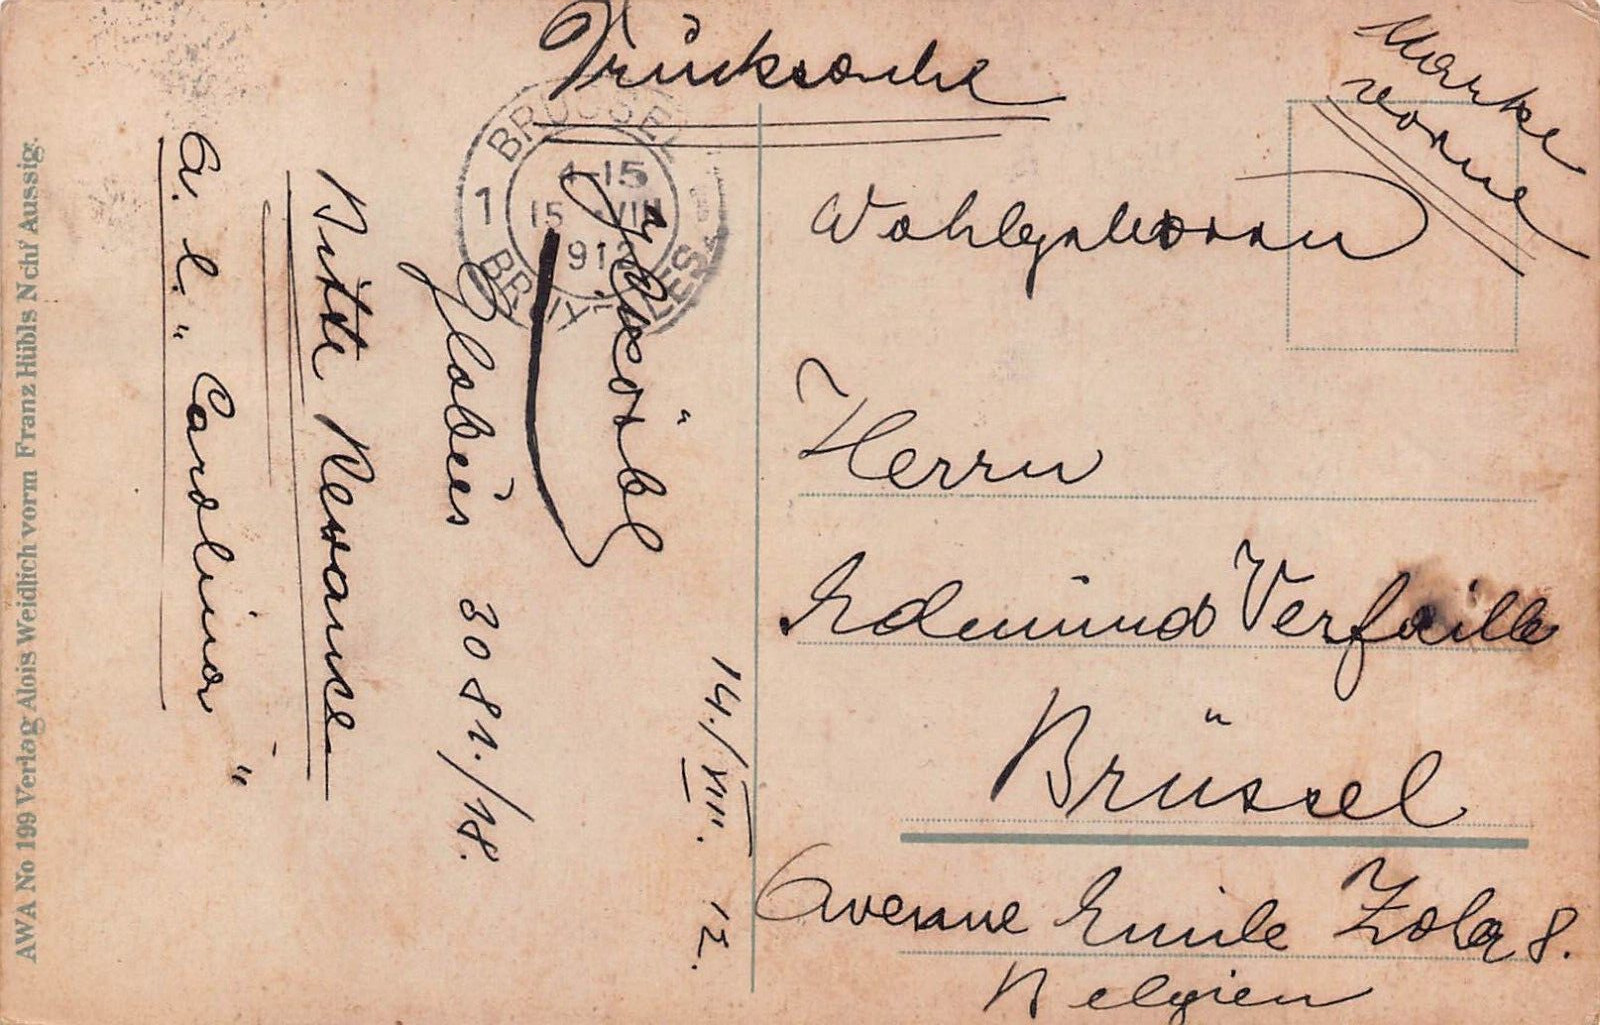 Drucksache
Marke
vorne
Wohlgeboren
Herrn
Edmund Verfaille
Brüssel
Avenue Emile Zola 8.
Belgien
14./VIII. 12.
Globus 3081./18.
Bitte Revance
a. l. „Carolina"
BRÜSSEL
1
4-15
15 VIII
1912
BRUXELLES
AWA No 199 Verlag Alois Weidlich vorm Franz Hübls Nchf Aussig.